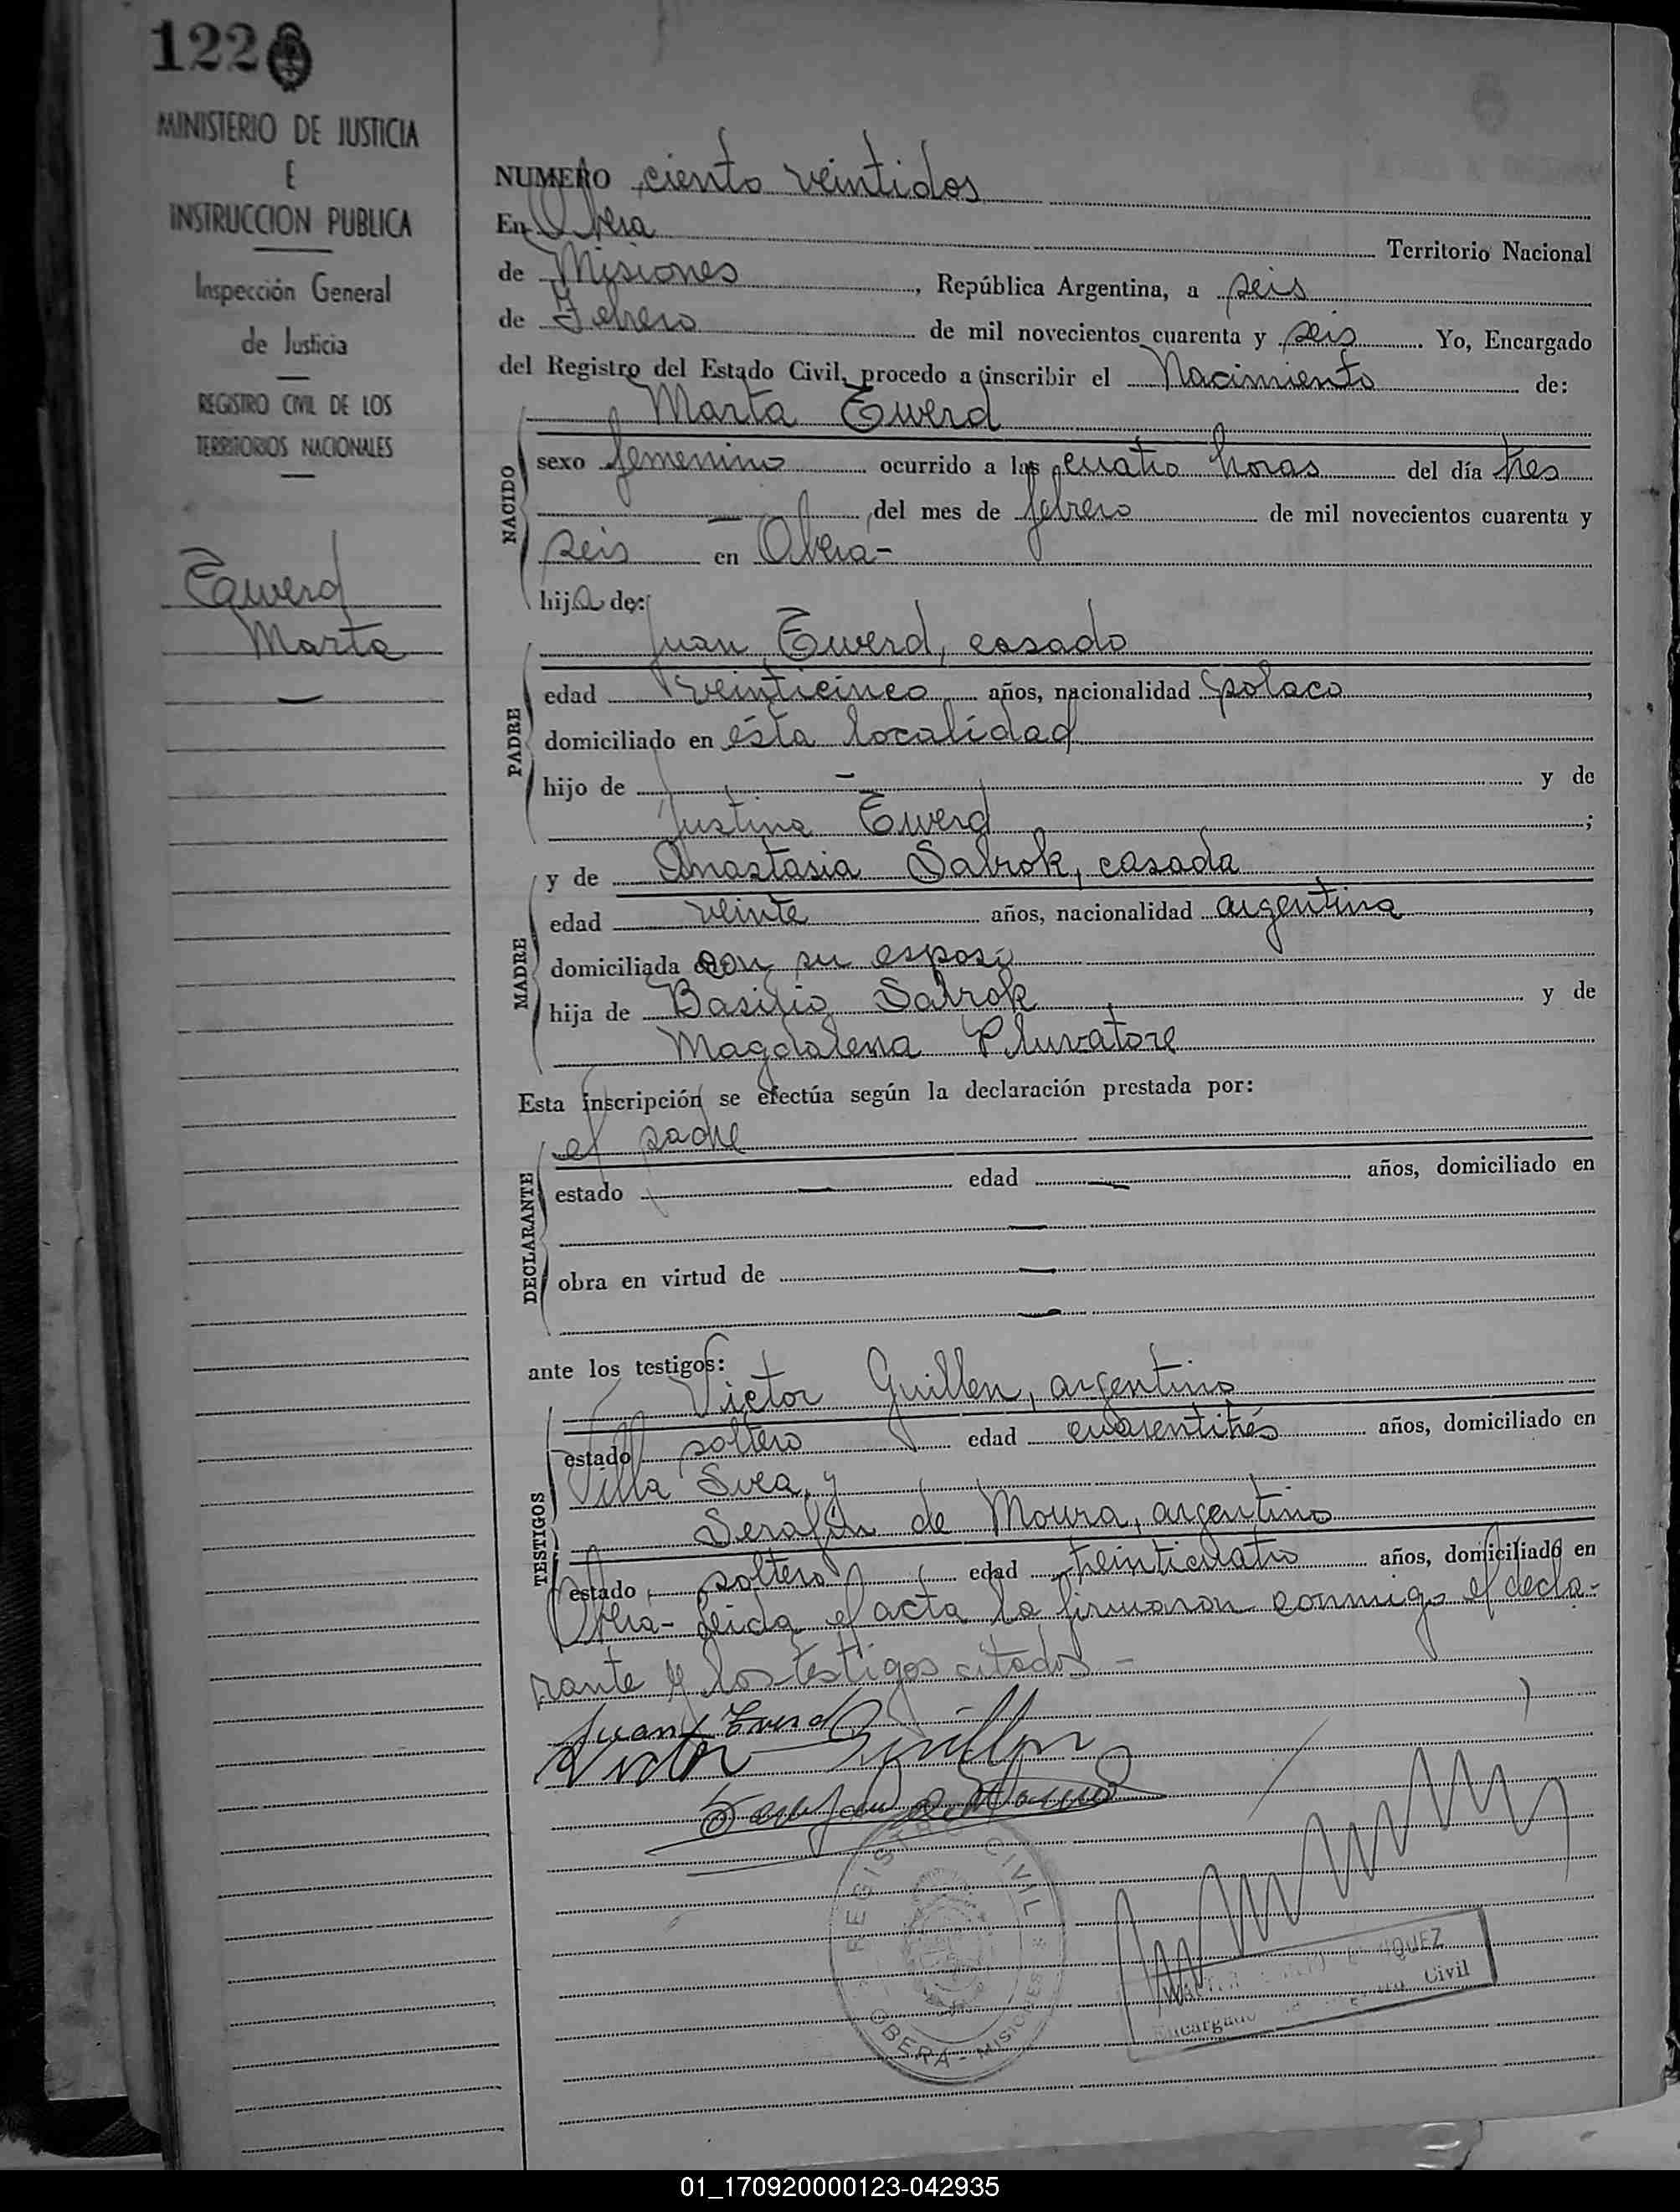 122
MINISTERIO DE JUSTICIA
E
INSTRUCCION PUBLICA
Inspección General
de Justicia
REGISTRO CIVIL DE LOS
TERRITORIOS NACIONALES
Eewerd
Marta
NUMERO ciento veintidos
En Obera Territorio Nacional
de Misiones, República Argentina, a seis
de Febrero de mil novecientos cuarenta y seis. Yo, Encargado
del Registro del Estado Civil, procedo a inscribir el Nacimiento de:
Marta Ewerd
NACIDO
sexo femenino ocurrido a las cuatro horas del día tres
— del mes de febrero de mil novecientos cuarenta y
seis en Obera-
hija de:
Juan Ewerd, casado
PADRE
edad veinticinco años, nacionalidad polaco,
domiciliado en ésta localidad
hijo de — y de
Justina Ewerd;
y de Anastasia Sabrok, casada
MADRE
edad veinte años, nacionalidad argentina,
domiciliada con su esposo
hija de Basilio Sabrok y de
Magdalena
Esta inscripción se efectúa según la declaración prestada por:
el padre
DECLARANTE
estado — edad — años, domiciliado en
—
obra en virtud de —
—
ante los testigos:
Victor Guillen, argentino
TESTIGOS
estado soltero edad cuarentitrés años, domiciliado en
Villa Svea, y
Serafin de Moura, argentino
estado soltero edad años, domiciliado en
Obera- Leida el acta la firmaron conmigo el decla-
rante y los testigos citados -
Juan Ewerd
Victor Guillen
REGISTRO CIVIL
OBERA - MISIONES
Encargado Civil
01_170920000123-042935